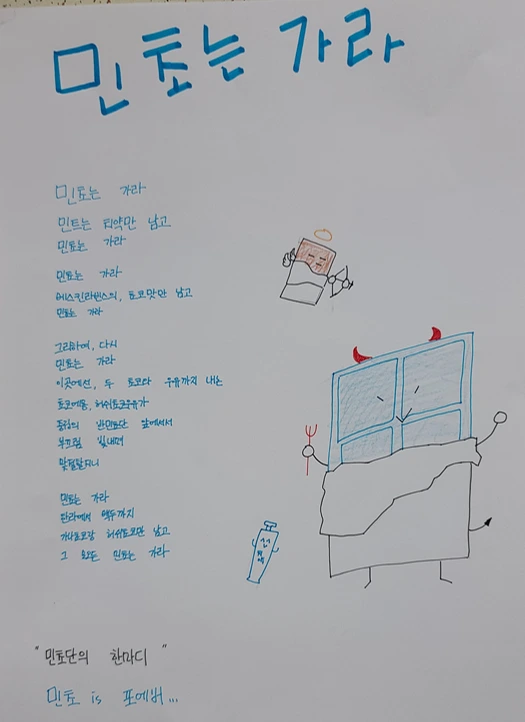 민초는 가라
민초는 가라
민트는 치약만 남고
민초는 가라
민초는 가라
베스킨라빈스의, 초코맛만 남고
민초는 가라
그리하여, 다시
민초는 가라
이곳에선, 두 초코와 우유까지 내논
초코에몽, 허쉬초코우유가
중립의 반민초단 앞에서서
부끄럼 빛내며
맞절할지니
민초는 가라
한라에서 백두까지
가나초코랑 허쉬초코만 남고
그 모든 민초는 가라
"민초단의 한마디"
민초 is 포에버...